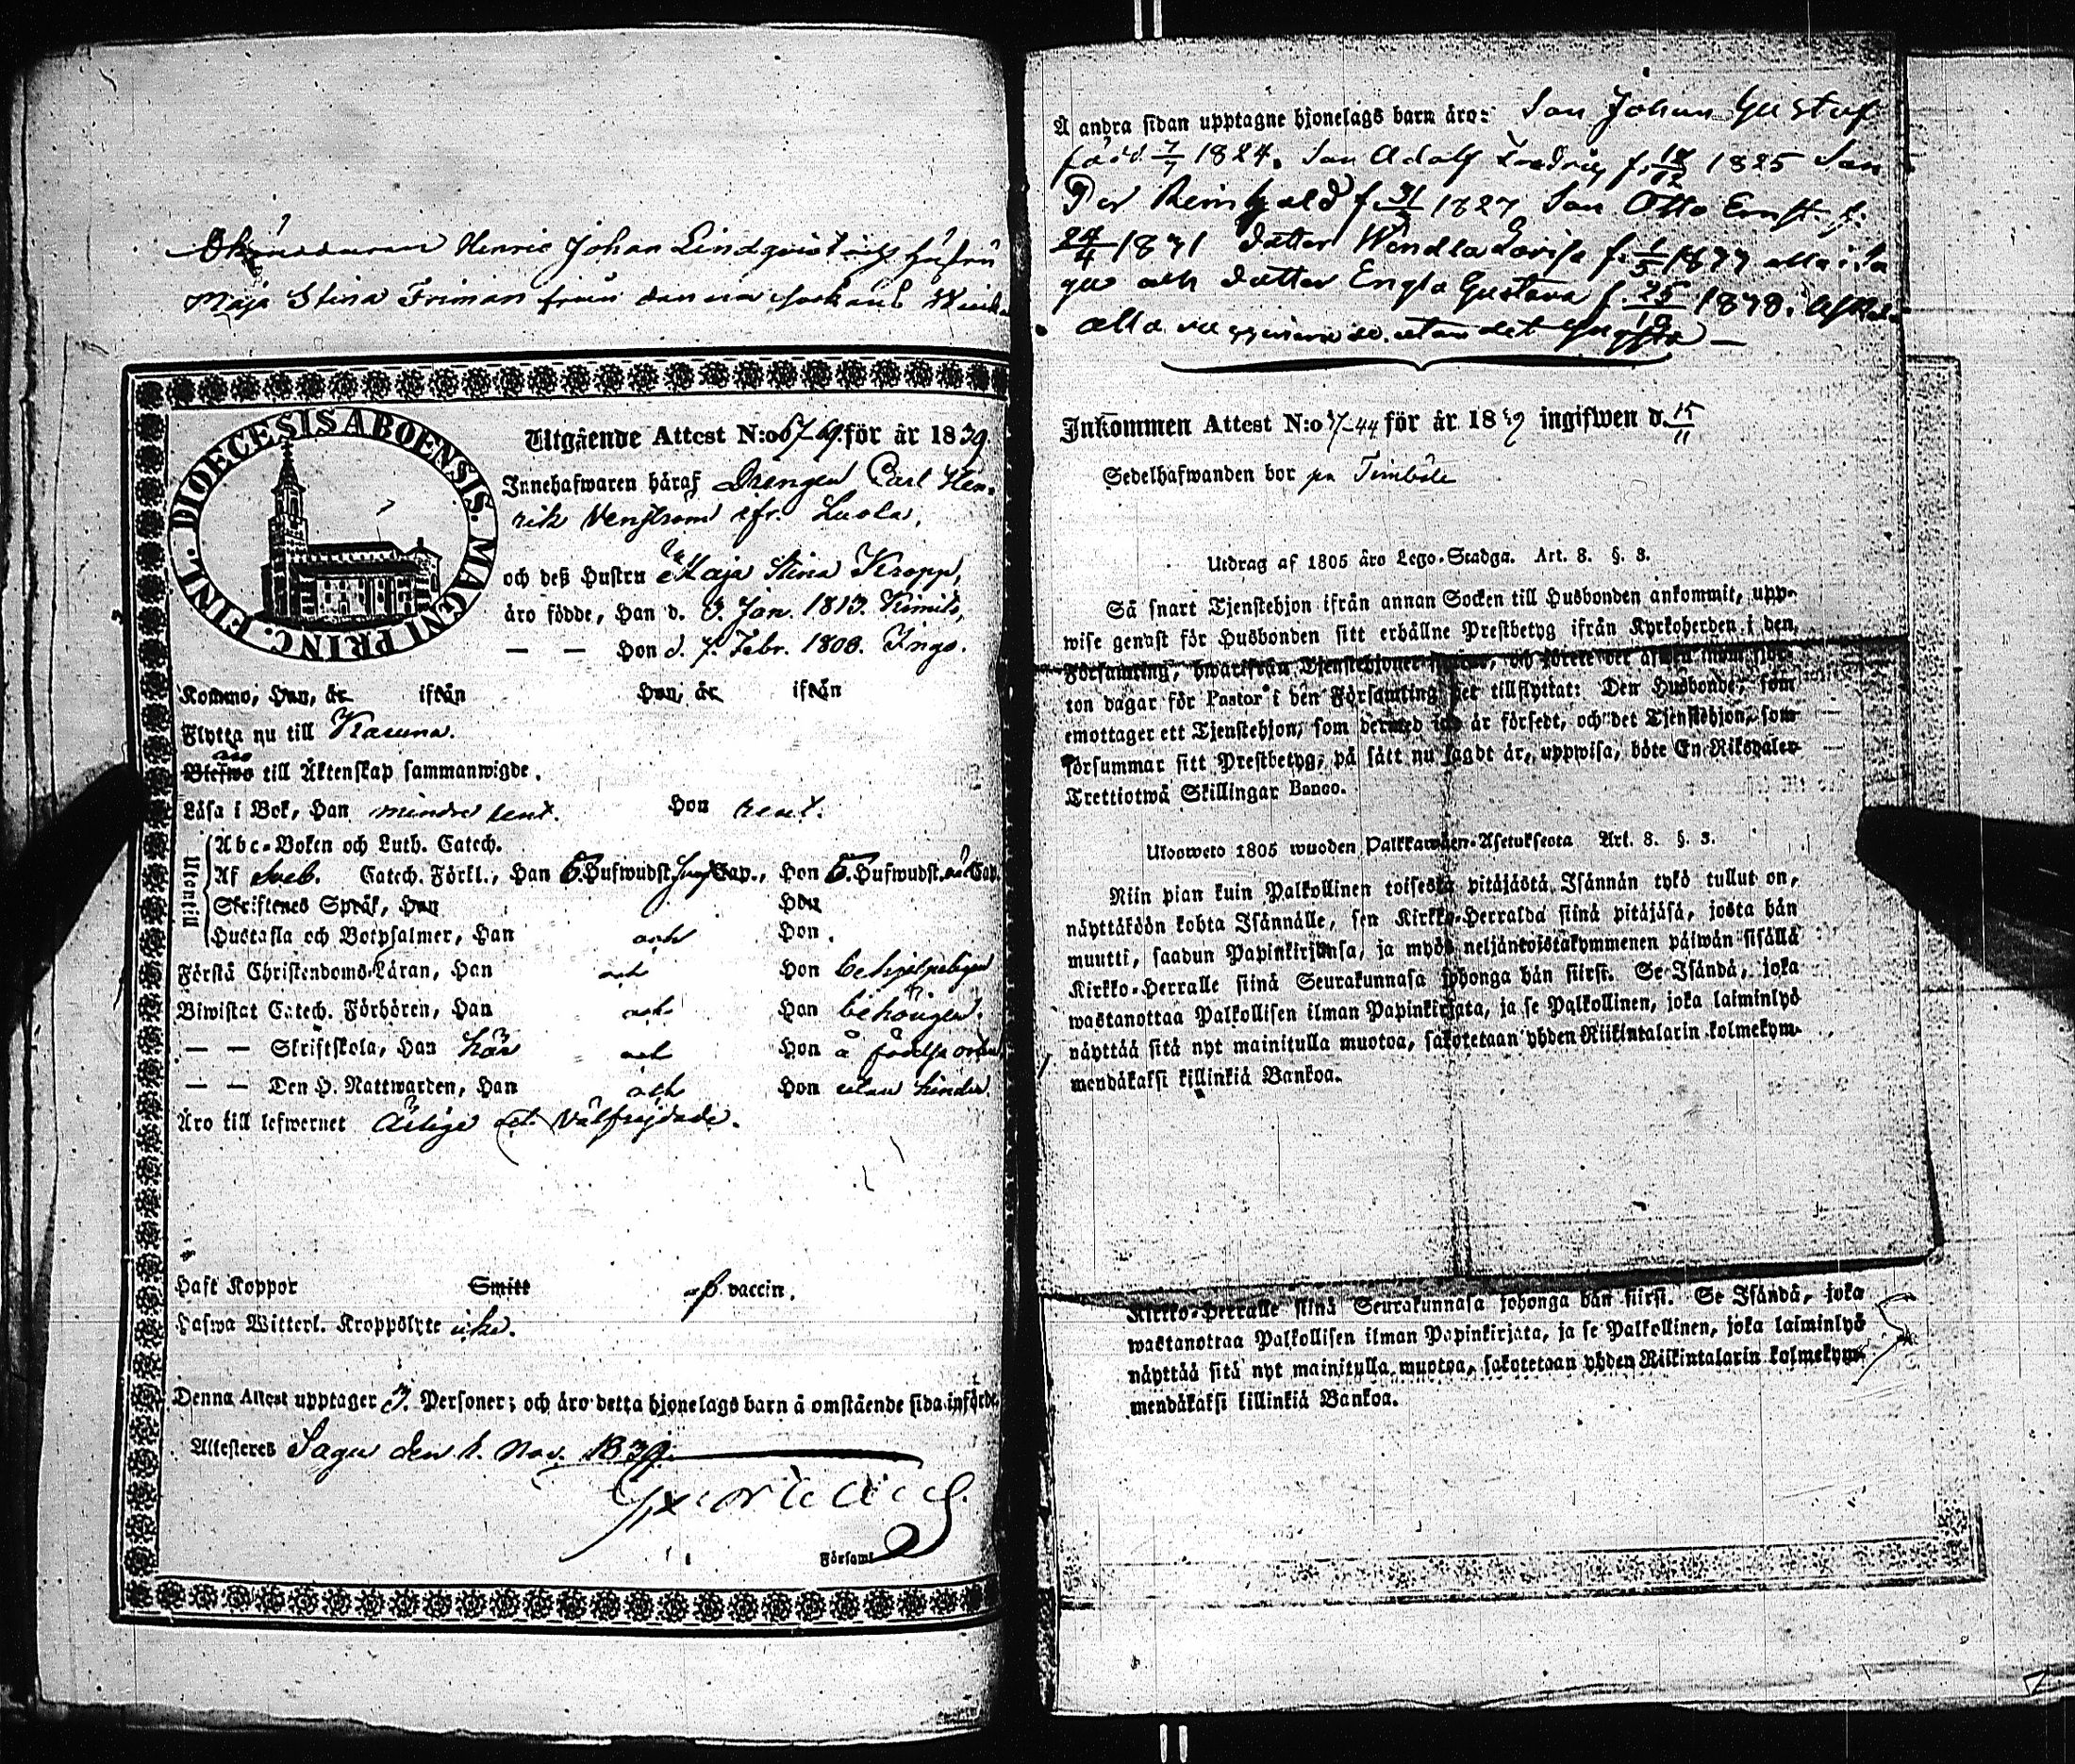 Henric Johan Lindqvist och hustru
Maja Stina Friman från denna
DIOECESIS ABOENSIS. MAGNI PRINC. FINL.
Utgående Attest N:o 67-69 för år 1839.
Innehafwaren häraf Drängen Carl Hen-
rik Venström ifr. Luola,
och deß Hustru Maja Stina Kropp,
äro födde, Han d. 3. Jan. 1813. Kimito,
— — Hon d. 7. Febr. 1808. Ingo.
Kommo, Han, år ifrån Hon, år ifrån
Flytta nu till Karuna.
äro
Blefwo till Äktenskap sammanwigde.
Läsa i Bok, Han mindre rent. Hon rent.
Utontill
Abc-Boken och Luth. Catech.
Af Sveb. Catech. Förkl., Han 5. Hufwudst. Cap., Hon 5. Hufwudst. Cap.
Skriftenes Språk, Han Hon
Hustafla och Botpsalmer, Han och Hon.
Förstå Christendoms-Läran, Han och Hon behjelpeligen
Biwistat Catech. Förhören, Han och Hon behörigen.
— — Skriftskola, Han här och Hon å födelse orten
— — Den H. Nattwarden, Han och Hon utan hinder.
Äro till lefwernet Ärlige och Välfrejdade.
Haft Koppor Smitt vaccin.
Hafwa Witterl. Kroppslyte icke.
Denna Attest upptager 3. Personer; och äro detta hjonelags barn å omstående sida införde.
Attesteras Sagu den 1. Nov. 1839.
Församl
Å andra sidan upptagne hjonelags barn äro: Son Johan Gustaf
född 7/7 1824. Son Adolf Fredric f. 18/12 1825 Son
Per Reinhold f. 31/ 1827 Son Otto Ernst f.
24/4 1831 Dotter Wendla Lovisa f. 1/5 1833 alla i Sa
gu och Dotter Engla Gustava f. 25/10 1838 i
alla vaccinerade utan det yngsta —
Inkommen Attest N:o 37-44 för år 1839 ingifwen d. 15/11
Sedelhafwanden bor på Timböle
Utdrag af 1805 åro Lego-Stadga. Art. 8. §. 3.
Så snart Tjenstehjon ifrån annan Socken till Husbonden ankommit, upp-
wise genast för Husbonden sitt erhållne Prestbetyg ifrån Kyrkoherden i den
Församling, hwarifrån Tjenstehjonet flyttat, och förete det äfwen inom fjor-
ton dagar för Pastor i den Församling det tillflyttat: Den Husbonde, som
emottager ett Tjenstehjon, som dermed icke är försedt, och det Tjenstehjon, som
försummar sitt Prestbetyg, på sätt nu sagdt är, uppwisa, böte En Riksdaler
Trettiotwå Skillingar Banco.
Uloosweto 1805 wuoden Palkkawäen-Asetuksesta Art. 8. §. 3.
Niin pian kuin Palkollinen toisesta pitäjästä Isännän tykö tullut on,
näyttäköön kohta Isännälle, sen Kirkko-Herralda siinä pitäjäsä, josta hän
muutti, saadun Papinkirjansa, ja myös neljäntoistakymmenen päiwän sisällä
Kirkko-Herralle siinä Seurakunnasa johonga hän siirsi. Se Isändä, joka
wastanottaa Palkollisen ilman Papinkirjata, ja se Palkollinen, joka laiminlyö
näyttää sitä nyt mainitulla muotoa, sakotetaan yhden Riikintalarin kolmekym-
mendäkaksi killinkiä Bankoa.
Kirkko-Herralle siinä Seurakunnasa johonga hän siirsi. Se Isändä, joka
wastanottaa Palkollisen ilman Papinkirjata, ja se Palkollinen, joka laiminlyö
näyttää sitä nyt mainitulla muotoa, sakotetaan yhden Riikintalarin kolmekym-
mendäkaksi killinkiä Bankoa.